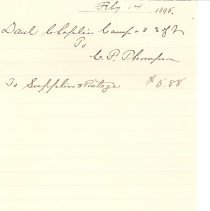 Feby 14 1895
Danl Chaplin Camp
To
C. P. Thompson
To Supplies & Postage $5.88